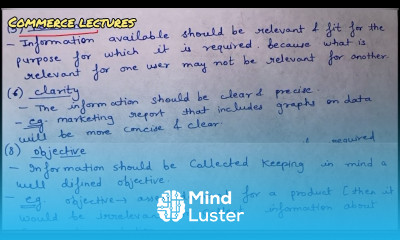 Commerce lectures
(5)
- Information available should be relevant & fit for the
purpose for which it is required. because what is
relevant for one user may not be relevant for another.
(6) clarity
- The information should be clear & precise
- eg. marketing report that includes graphs on data
will be more concise & clear.
required
(8) objective
- Information should be Collected Keeping in mind a
well defined objective.
- eg. objective → for a product [then it
would be information about
Mind
Luster